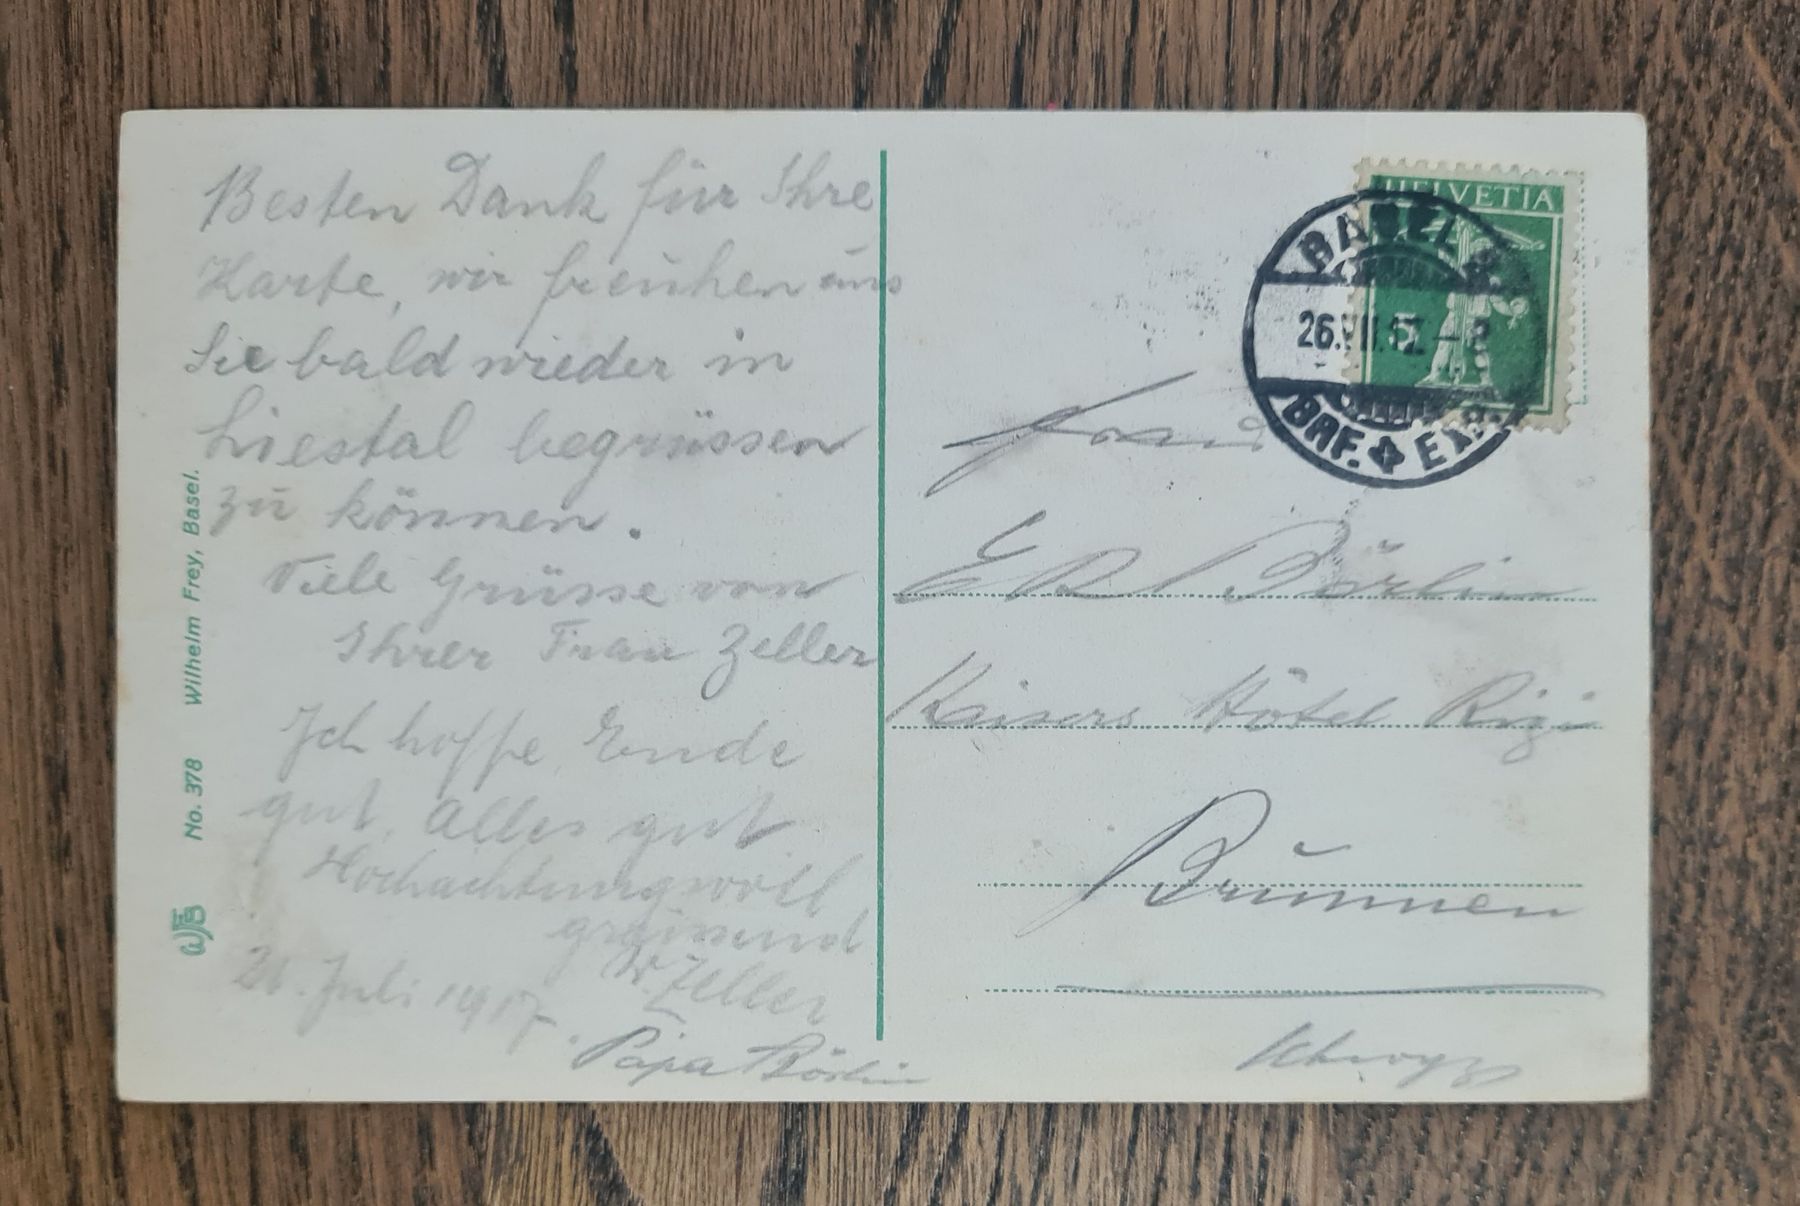 Besten Dank für Ihre
Karte, wir freuhen uns
Sie bald wieder in
Liestal begrüssen
zu können.
Viele Grüsse von
Ihrer Frau Zeller
Ich hoffe, Ende
gut, Alles gut
Hochachtungsvoll
grüssend
W. Zeller
Juli 1917.
Papa Börlin
WFB No. 378 Wilhelm Frey, Basel.
HELVETIA
5
BASEL
26.VII.17.
BRF. EXP.
Frau
Börlin
Kaisers Hôtel Rigi
Brunnen
Schwyz